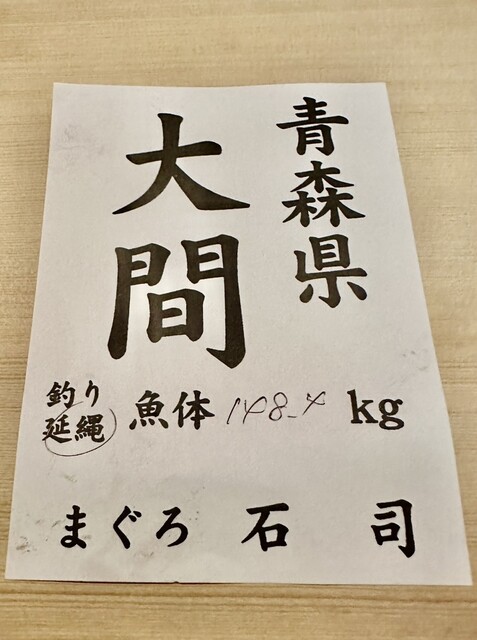 青森県
大間
釣り
延縄
魚体 148.4 kg
まぐろ 石 司